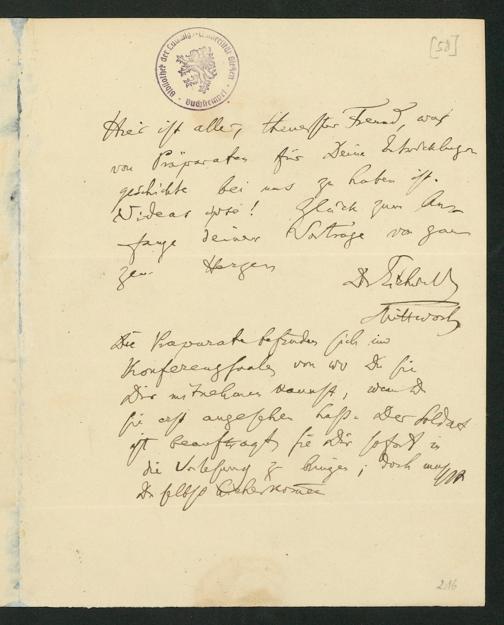 [58]
Bibliothek der Ludwigs-Universität Gießen
Buchstempel
Hier ist alles, theuerster Freund, was
von Präparaten für Deine Entwicklungs
geschichte bei uns zu haben ist.
Videas ipse! Glück zum An-
fange deiner Vorträge von gan
zem Herzen
Dr Eichwald
Mittwoch
Die Präparate befinden sich im
Konferenzsaale, von wo Du sie
Dir mitnehmen kannst, wenn D
sie erst angesehen hast. Der Soldat
ist beauftragt, sie Dir sofort in
die Vorlesung zu bringen; doch mußt
Du selbst
216